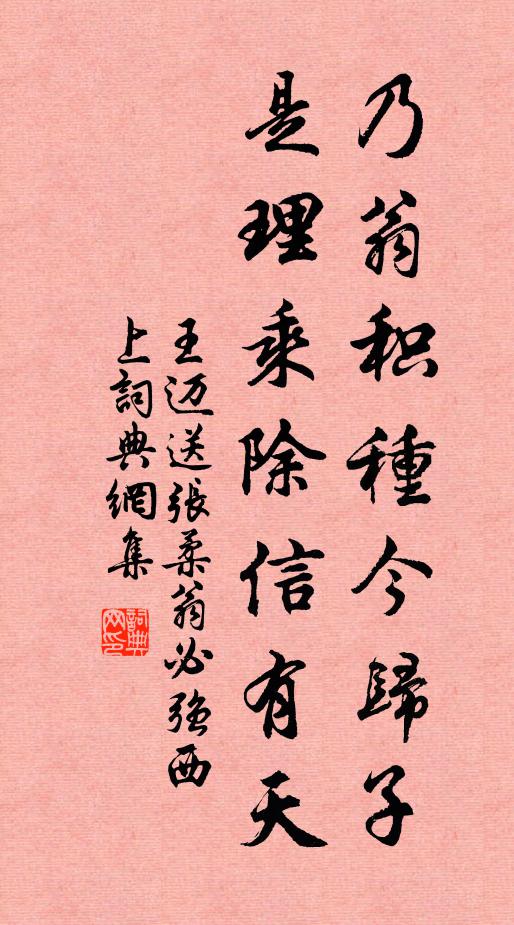 乃翁积種今歸子
是理乘除信有天
王迈送張柔翁必強西
上詞典網集
詞典
网印